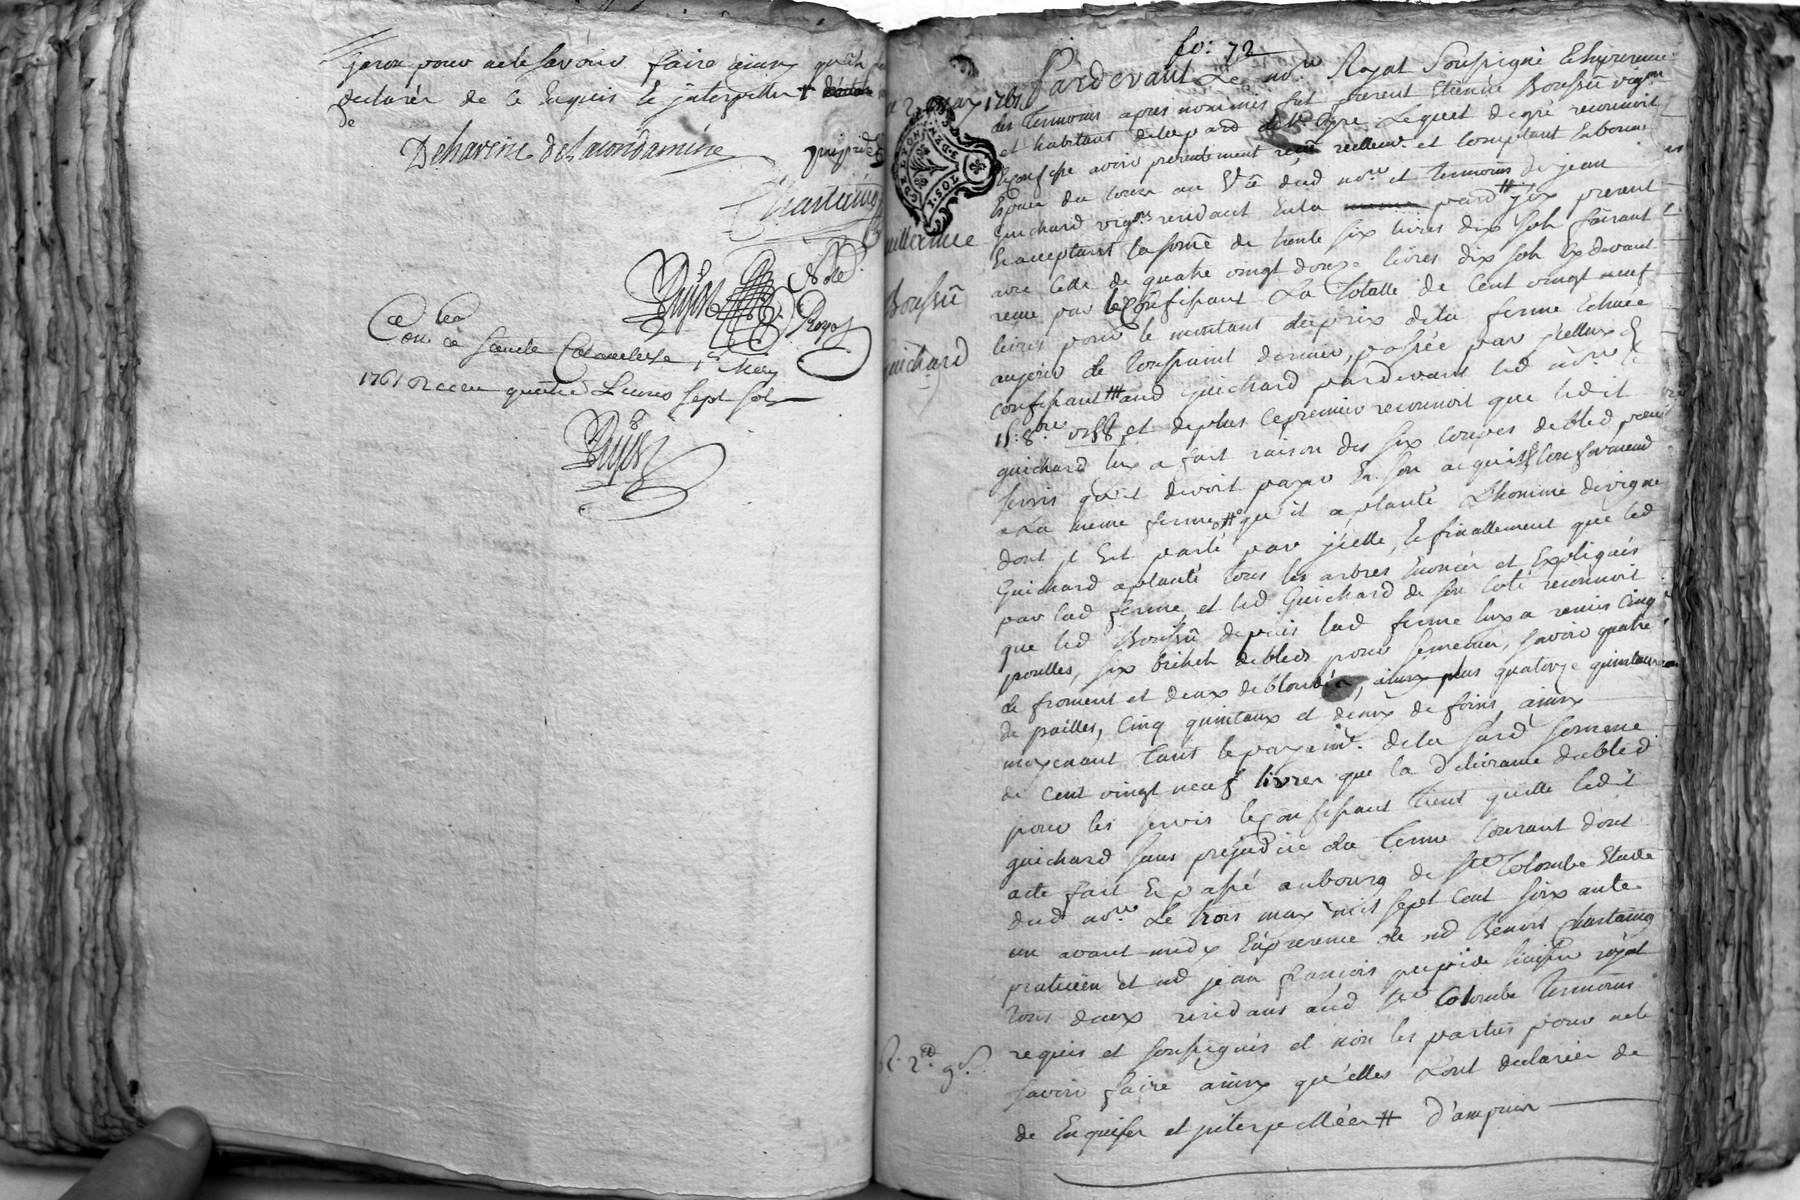 pour acte savoir faire ainsy qu'il
declarés de ce Enquis Et jnterpellés
Deharenc delacondamine
Chastaing
Dupuy Nore
Royal
Con.lé à sainte Colombe le May
1761 receu quatre Livres sept sols
Dupuy
fo: 72
2 May 1761
DE LYON
1. SOL
Guillermée
Boussû
Guichard
Pardevant Le no.re Royal Soussigné Et en presence
des Temoins apres nommés fut present Etienne Boussû vigon
et habitant Lequel de gré reconnoit
Et confesse avoir presentement reçû reellem.t et comptant
Espece du cours au Vû dud no.re et temoins de jean
Guichard vig.on residant En la pard jcy present
Et acceptant la somme de trente six livres dix sols faisant
avec celle de quatre vingt douze livres dix sols cy devant
reçue par le confessant La Totalle de Cent vingt neuf
livres pour le montant du prix de la ferme Echuée
aujour de Toussaint dernier, passée par jcelluy
confessant aud Guichard pardevant led no.re
15: 8.bre 1758 et deplus le premier reconnoit que ledit
guichard luy a fait raison des six coupes de bled pour
servis qu'il devoit payer En son acquit
a La meme ferme qu'il a planté L'homme de vigne
dont jl Est parlé par jcelle, Et finallement que led
Guichard a planté tous les arbres Enoncés et Expliqués
par lad ferme et led Guichard de son coté reconnoit
que led Boussû depuis lad ferme luy a remis Cinq
poulles, six bichets de bleds pour semences, savoir quatre
de froment et deux de blondée, ainsy plus quatorze quintaux
de pailles, Cinq quintaux et demy de foins, ainsy
moyenant tant le payem.t de la susd somme
de Cent vingt neuf livres que la delivrance du bled
pour les servis le confessant tient quitte ledit
guichard sans prejudice du Terme courant dont
acte fait Et passé au bourg de S.te Colombe Etude
dud no.re Le trois may mil sept cent soixante
un avant midy En presence de sr Benoit Chastaing
praticien et sr jean françois huissier royal
tous deux residans aud S.te Colombe Temoins
requis et soussignés et non les parties pour ne le
savoir faire ainsy qu'elles L'ont declarées de
de Enquises et jnterpellées